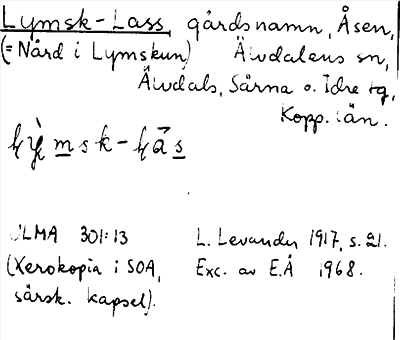 Lymsk-Lass, gårdsnamn, Åsen,
(= Nård i Lymskun) Älvdalens sn,
Älvdals, Särna o. Idre tg,
Kopp. län.
ULMA 301:13 L. Levander 1917, s. 21.
(Xerokopia i SOA, Exc. av E.Å 1968.
särsk. kapsel).